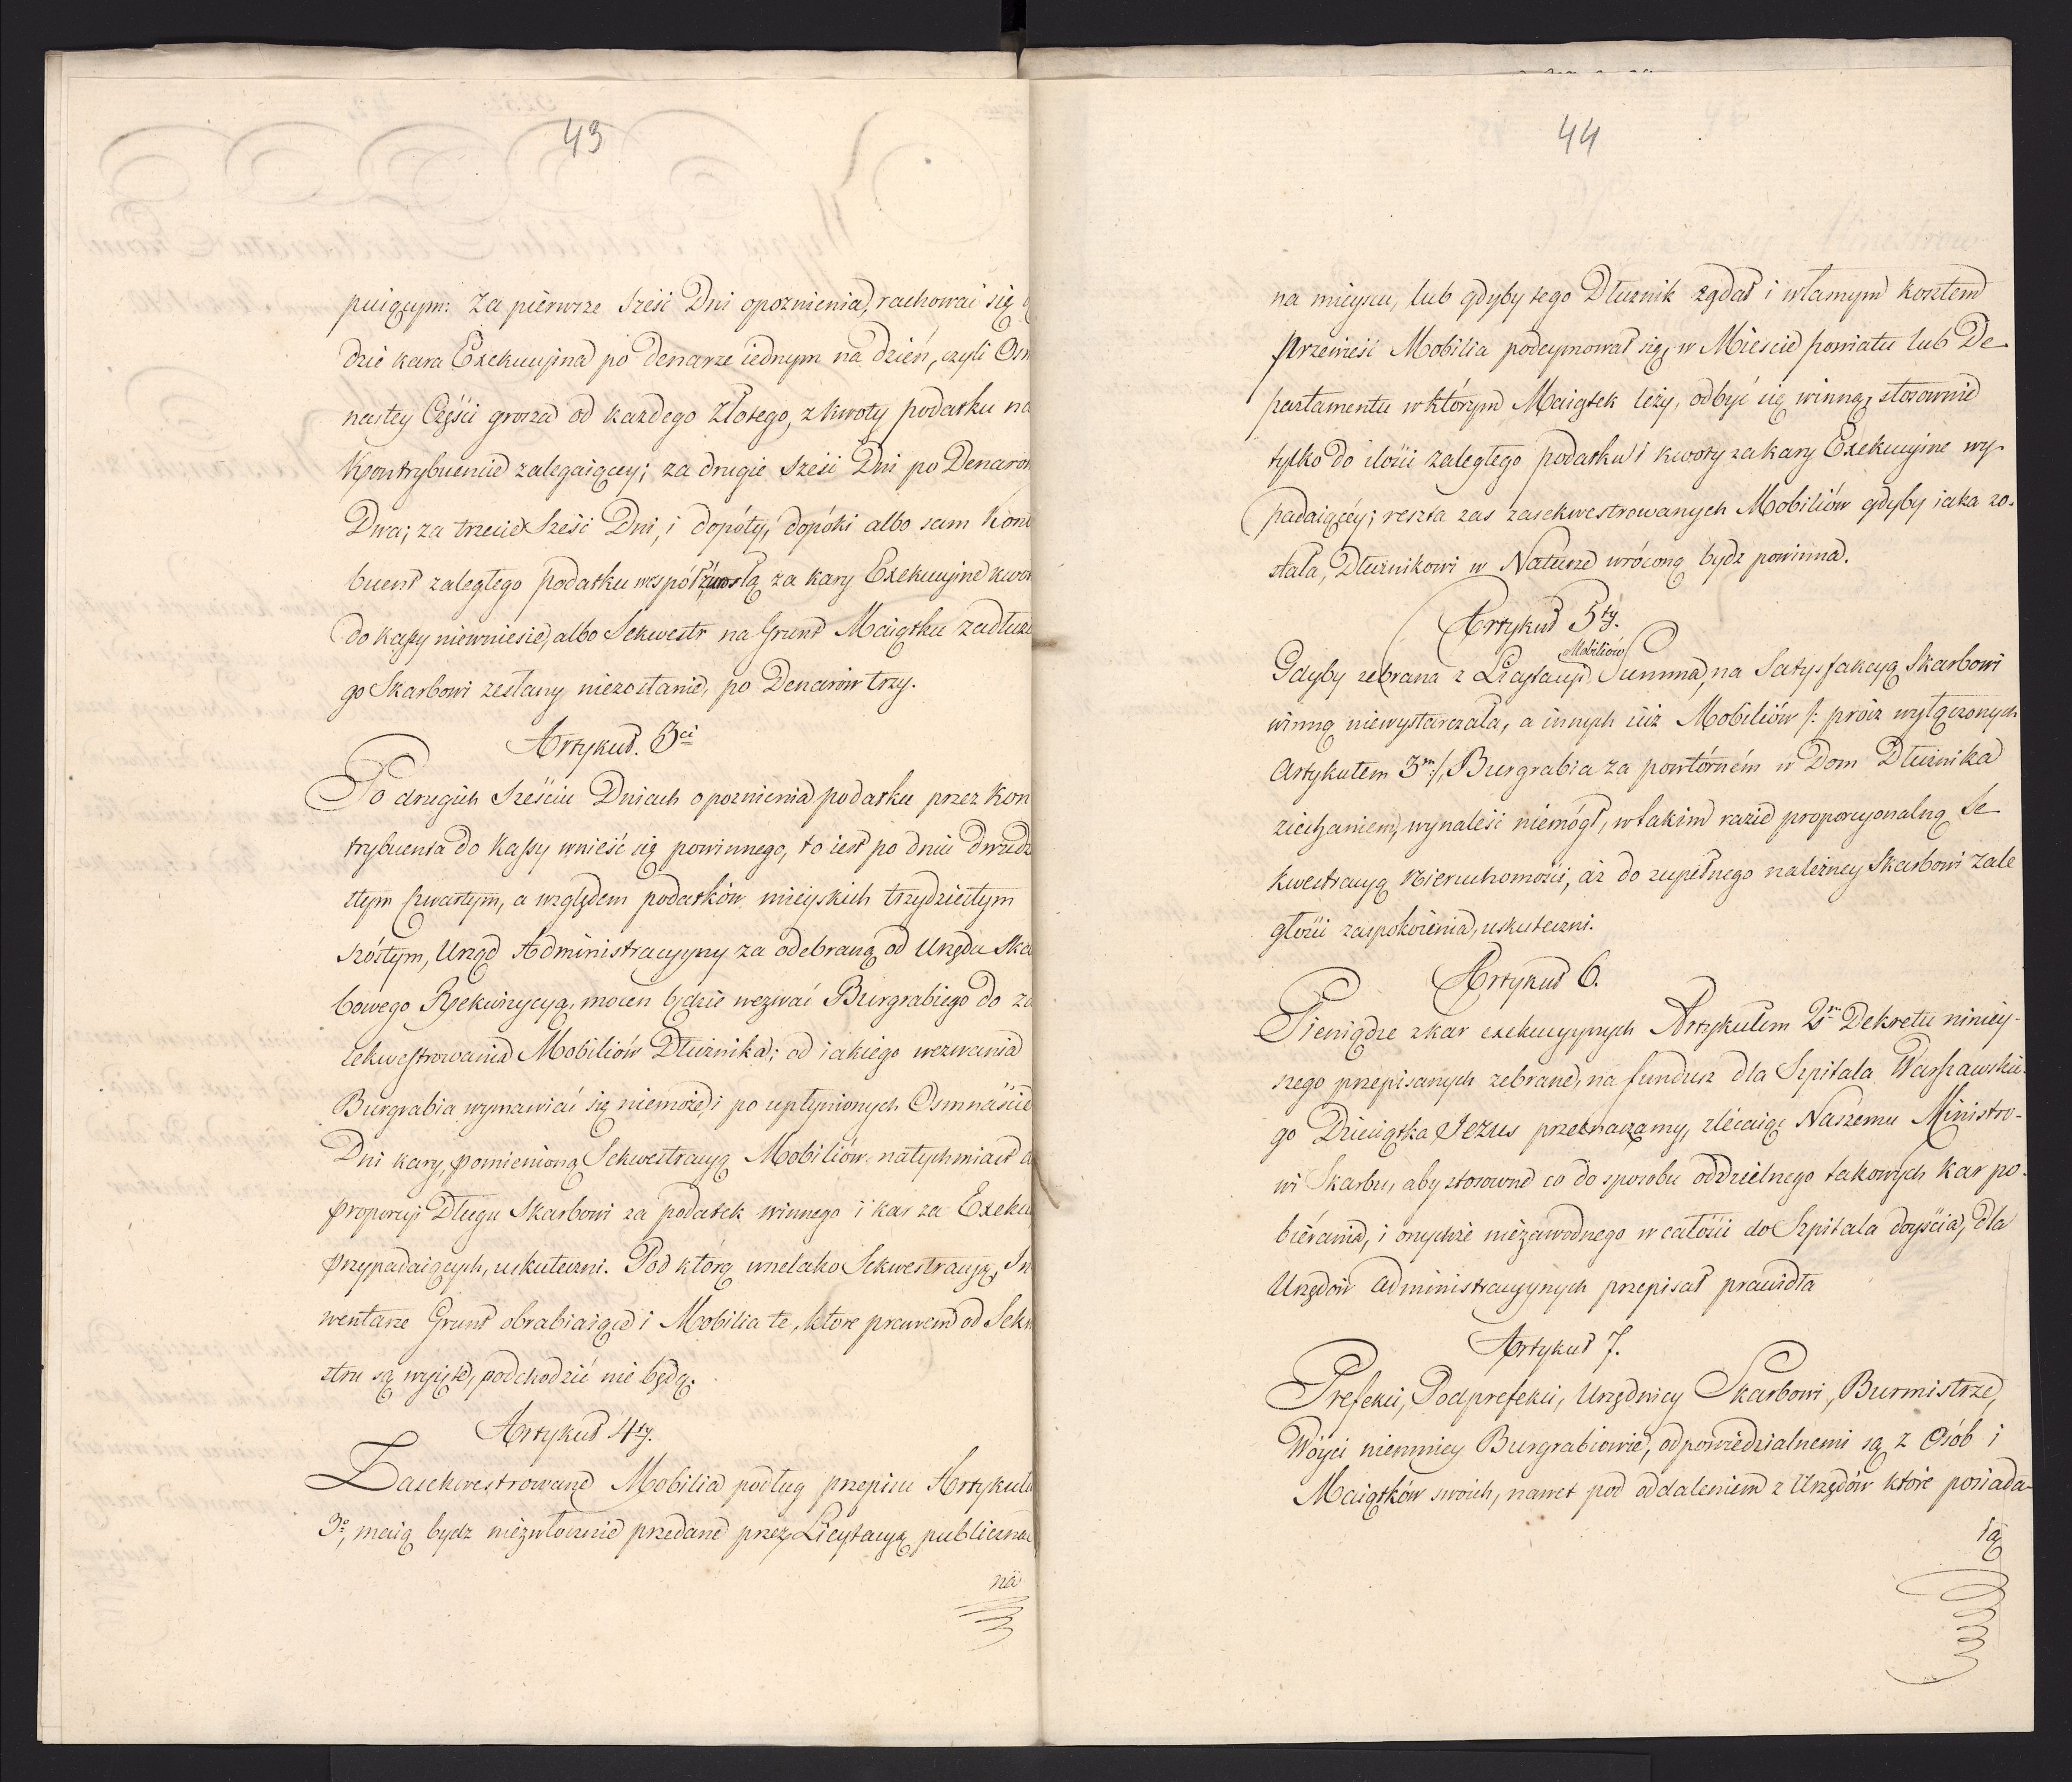 43
puiącym: Za pierwsze sześć Dni opoznienia, rachować się
dzie kara Exekucyina po denarze iednym na dzień, czyli Osm
nastey Części grosza od każdego Złotego, z kwoty podatku na
Kontrybuencie zalegaiącey; za drugie sześć Dni po Denarow
Dwa; za trzecie sześć Dni, i dopóty, dopóki albo sam Kont
buent zaległego podatku wespół zurosłą za kary Exekucyine kwot
do kassy niewniesie, albo Sekwestr na Grunt Maiątku zadłuż
go Skarbowi zesłany niezostanie, po Denarów trzy.
Artykuł. 3ci
Po drugich Sześciu Dniach opoznienia podatku przez Kon
trybuenta do Kassy wnieść się powinnego, to iest po dniu dwudz
stym czwartym, a względem podatków mieyskich trzydziestym
szóstym, Urząd Administracyyny za odebraną od Urzędu Ska
bowego Rekwizycyą, mocen będzie wezwać Burgrabiego do za
sekwestrowania Mobiliów Dłużnika; od iakiego wezwania
Burgrabia wymawiać się niemoże, i po upłynionych Osmnaście
Dni kary, pomienioną Sekwestracyą Mobiliów natychmiast d
proporcyi Długu Skarbowi za podatek winnego i kar za Exeku
przypadaiących, uskuteczni. Pod którą wszelako Sekwestracyą, In
wentarze Grunt obrabiaiące i Mobilia te, które prawem od Sekw
stru są wyięte, podchodzić nie będą.
Artykuł 4ty.
Zasekwestrowane Mobilia podług przepisu Artykułu
3o, maią bydz niezwłocznie przedane przez Licytacyą publiczną
na
44
na mieyscu, lub gdyby tego Dłużnik żądał i własnym kosztem
przewieść Mobilia podeymował się, w Mieście powiatu lub De-
partamentu w którym Maiątek leży, odbyć się winną, stosownie
tylko do ilości zaległego podatku i kwoty za kary Exekucyine wy-
padaiącéy; reszta zas zasekwestrowanych Mobiliów gdyby iaka zo-
stała, Dłużnikowi w Naturze wróconą bydz powinna.
Artykuł 5ty.
Mobiliów
Gdyby zebrana z Licytacyi Summa, na Satysfakcyą Skarbowi
winną niewystarczała, a innych iuż Mobiliów /: prócz wyłączonych
Artykułem 3m:/, Burgrabia za powtórném w Dom Dłużnika
ziechaniem, wynaleśi niemógł, w takim razie proporcyonalną Se
kwestracyą Nieruchomości, aż do zupełnego należney Skarbowi zale
głości zaspokoienia, uskuteczni.
Artykuł 6.
Pieniądze z kar exekucyynych Artykułem 2m Dekretu niniey-
szego przepisanych zebrane, na fundusz dla Szpitala Warszawskie-
go Dzieciątka Jezus przeznaczamy, zlécaiąc Naszemu Ministro-
wi Skarbu, aby stosowne co do sposobu oddzielnego takowych kar po-
biérania, i onychże niezawodnego w całości do Szpitala doyścia, dla
Urzędów Administracyynych przepisał prawidła
Artykuł 7.
Prefekci, Podprefekci, Urzędnicy Skarbowi, Burmistrze,
Wóyci niemniey Burgrabiowie, odpowiedzialnemi są z Osób i
Maiątków swoich, nawet pod oddaleniem z Urzędów które posiada-
ią